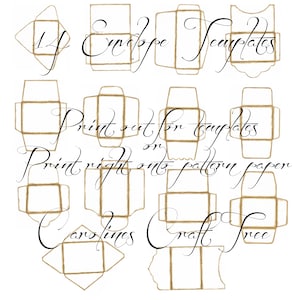 14 Envelope Templates
Print out for templates
or
Print right onto pattern paper
Carolines Craft Tree